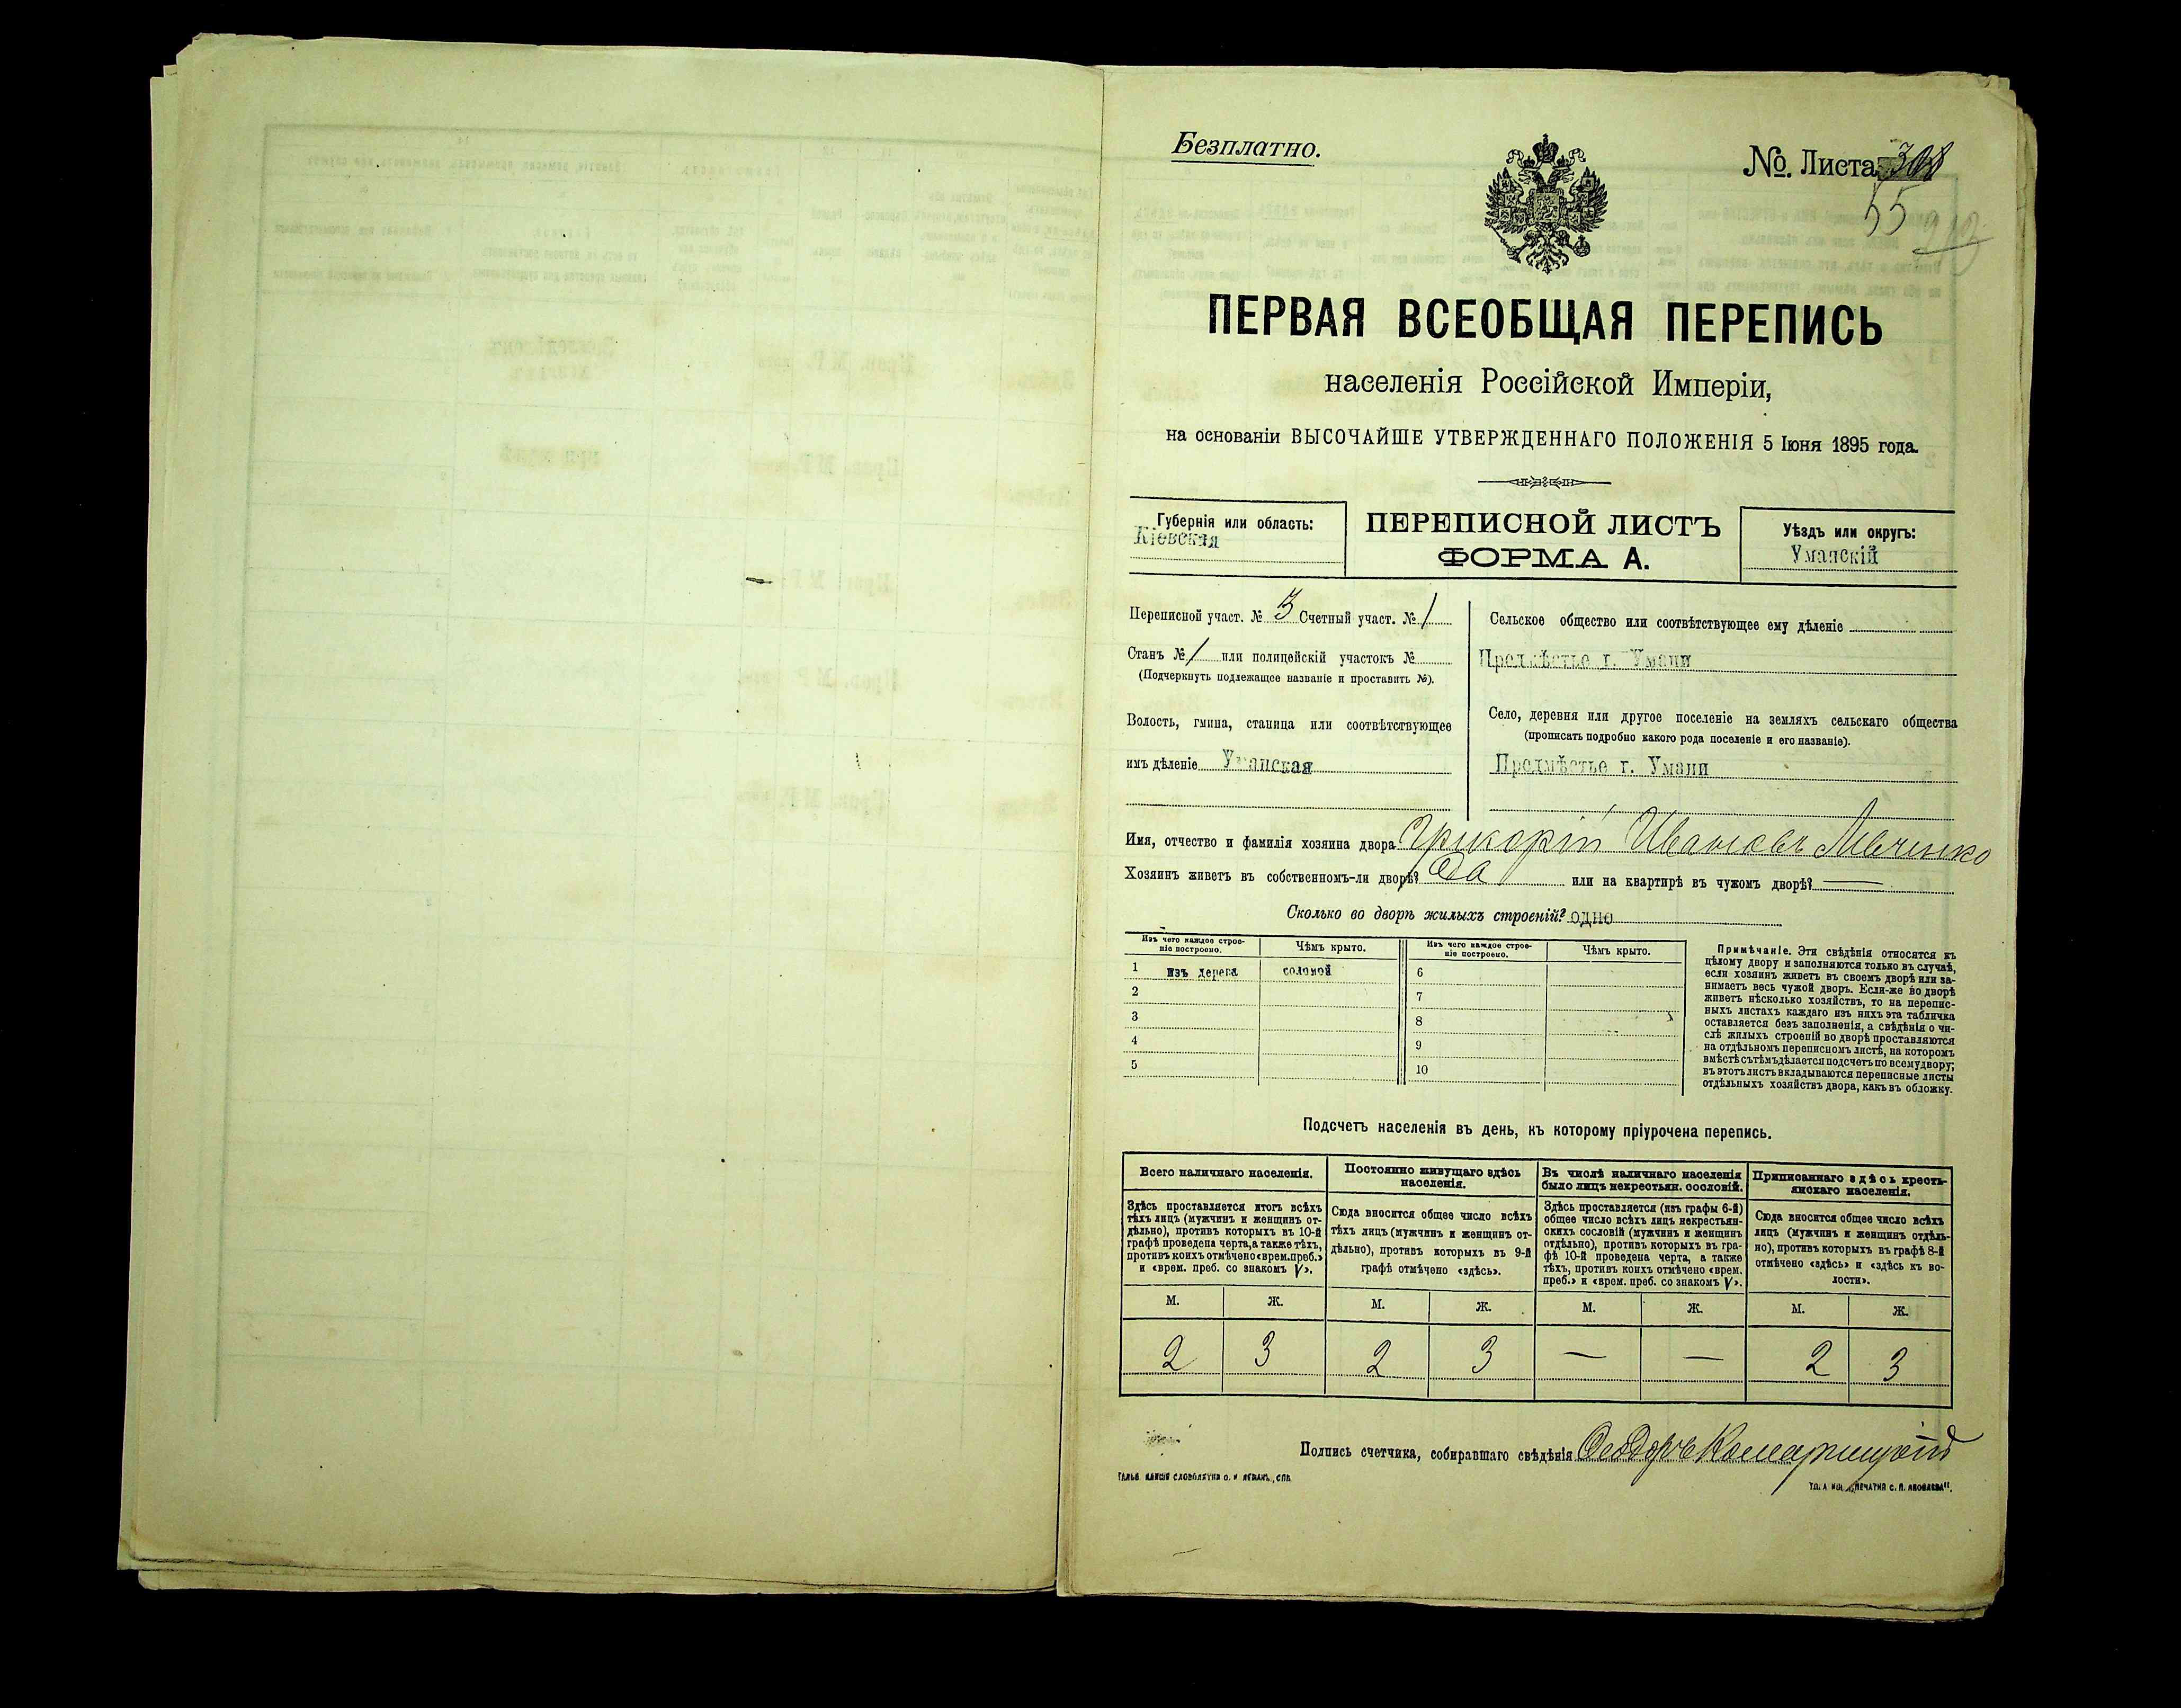 Безплатно.
№. Листа
55
ПЕРВАЯ ВСЕОБЩАЯ ПЕРЕПИСЬ
населенія Россійской Имперіи,
на основаніи ВЫСОЧАЙШЕ УТВЕРЖДЕННАГО ПОЛОЖЕНІЯ 5 Іюня 1895 года.
Губернія или область:
Кіевская
ПЕРЕПИСНОЙ ЛИСТЪ
ФОРМА А.
Уѣздъ или округъ:
Уманскій
Переписной участ. № 3 Счетный участ. № 1
Станъ № 1 или полицейскій участокъ №
(Подчеркнуть подлежащее названіе и проставить №).
Волость, гмина, станица или соотвѣтствующее
имъ дѣленіе Уманская
Сельское общество или соотвѣтствующее ему дѣленіе
Предмѣстье г. Умани
Село, деревня или другое поселеніе на земляхъ сельскаго общества
(прописать подробно какого рода поселеніе и его названіе).
Предмѣстье г. Умани
Имя, отчество и фамилія хозяина двора Григорій Ивановъ Левченко
Хозяинъ живетъ въ собственномъ-ли дворѣ? Да или на квартирѣ въ чужомъ дворѣ? —
Сколько во дворѣ жилыхъ строеній? одно
Изъ чего каждое строе-
ніе построено.
Чѣмъ крыто.
Изъ чего каждое строе-
ніе построено.
Чѣмъ крыто.
1 изъ дерева соломой 6
2 7
3 8
4 9
5 10
Примѣчаніе. Эти свѣдѣнія относятся къ
цѣлому двору и заполняются только въ случаѣ,
если хозяинъ живетъ въ своемъ дворѣ или за-
нимаетъ весь чужой дворъ. Если-же во дворѣ
живетъ нѣсколько хозяйствъ, то на перепис-
ныхъ листахъ каждаго изъ нихъ эта табличка
оставляется безъ заполненія, а свѣдѣнія о чи-
слѣ жилыхъ строеній во дворѣ проставляются
на отдѣльномъ переписномъ листѣ, на которомъ
вмѣстѣ съ тѣмъ дѣлается подсчетъ по всему двору;
въ этотъ листъ вкладываются переписные листы
отдѣльныхъ хозяйствъ двора, какъ въ обложку.
Подсчетъ населенія въ день, къ которому пріурочена перепись.
Всего наличнаго населенія.
Здѣсь проставляется итогъ всѣхъ
тѣхъ лицъ (мужчинъ и женщинъ от-
дѣльно), противъ которыхъ въ 10-й
графѣ проведена черта, а также тѣхъ,
противъ коихъ отмѣчено «врем. преб.»
и «врем. преб. со знакомъ V».
Постоянно живущаго здѣсь
населенія.
Сюда вносится общее число всѣхъ
тѣхъ лицъ (мужчинъ и женщинъ от-
дѣльно), противъ которыхъ въ 9-й
графѣ отмѣчено «здѣсь».
Въ числѣ наличнаго населенія
было лицъ некрестьян. сословій.
Здѣсь проставляется (изъ графы 6-й)
общее число всѣхъ лицъ некрестьян-
скихъ сословій (мужчинъ и женщинъ
отдѣльно), противъ которыхъ въ гра-
фѣ 10-й проведена черта, а также
тѣхъ, противъ коихъ отмѣчено «врем.
преб.» и «врем. преб. со знакомъ V».
Приписаннаго здѣсь кресть-
янскаго населенія.
Сюда вносится общее число всѣхъ
лицъ (мужчинъ и женщинъ отдѣль-
но), противъ которыхъ въ графѣ 8-й
отмѣчено «здѣсь» и «здѣсь къ во-
лости».
М. Ж. М. Ж. М. Ж. М. Ж.
2 3 2 3 — — 2 3
Подпись счетчика, собиравшаго свѣдѣнія Феодоръ Комарницкій